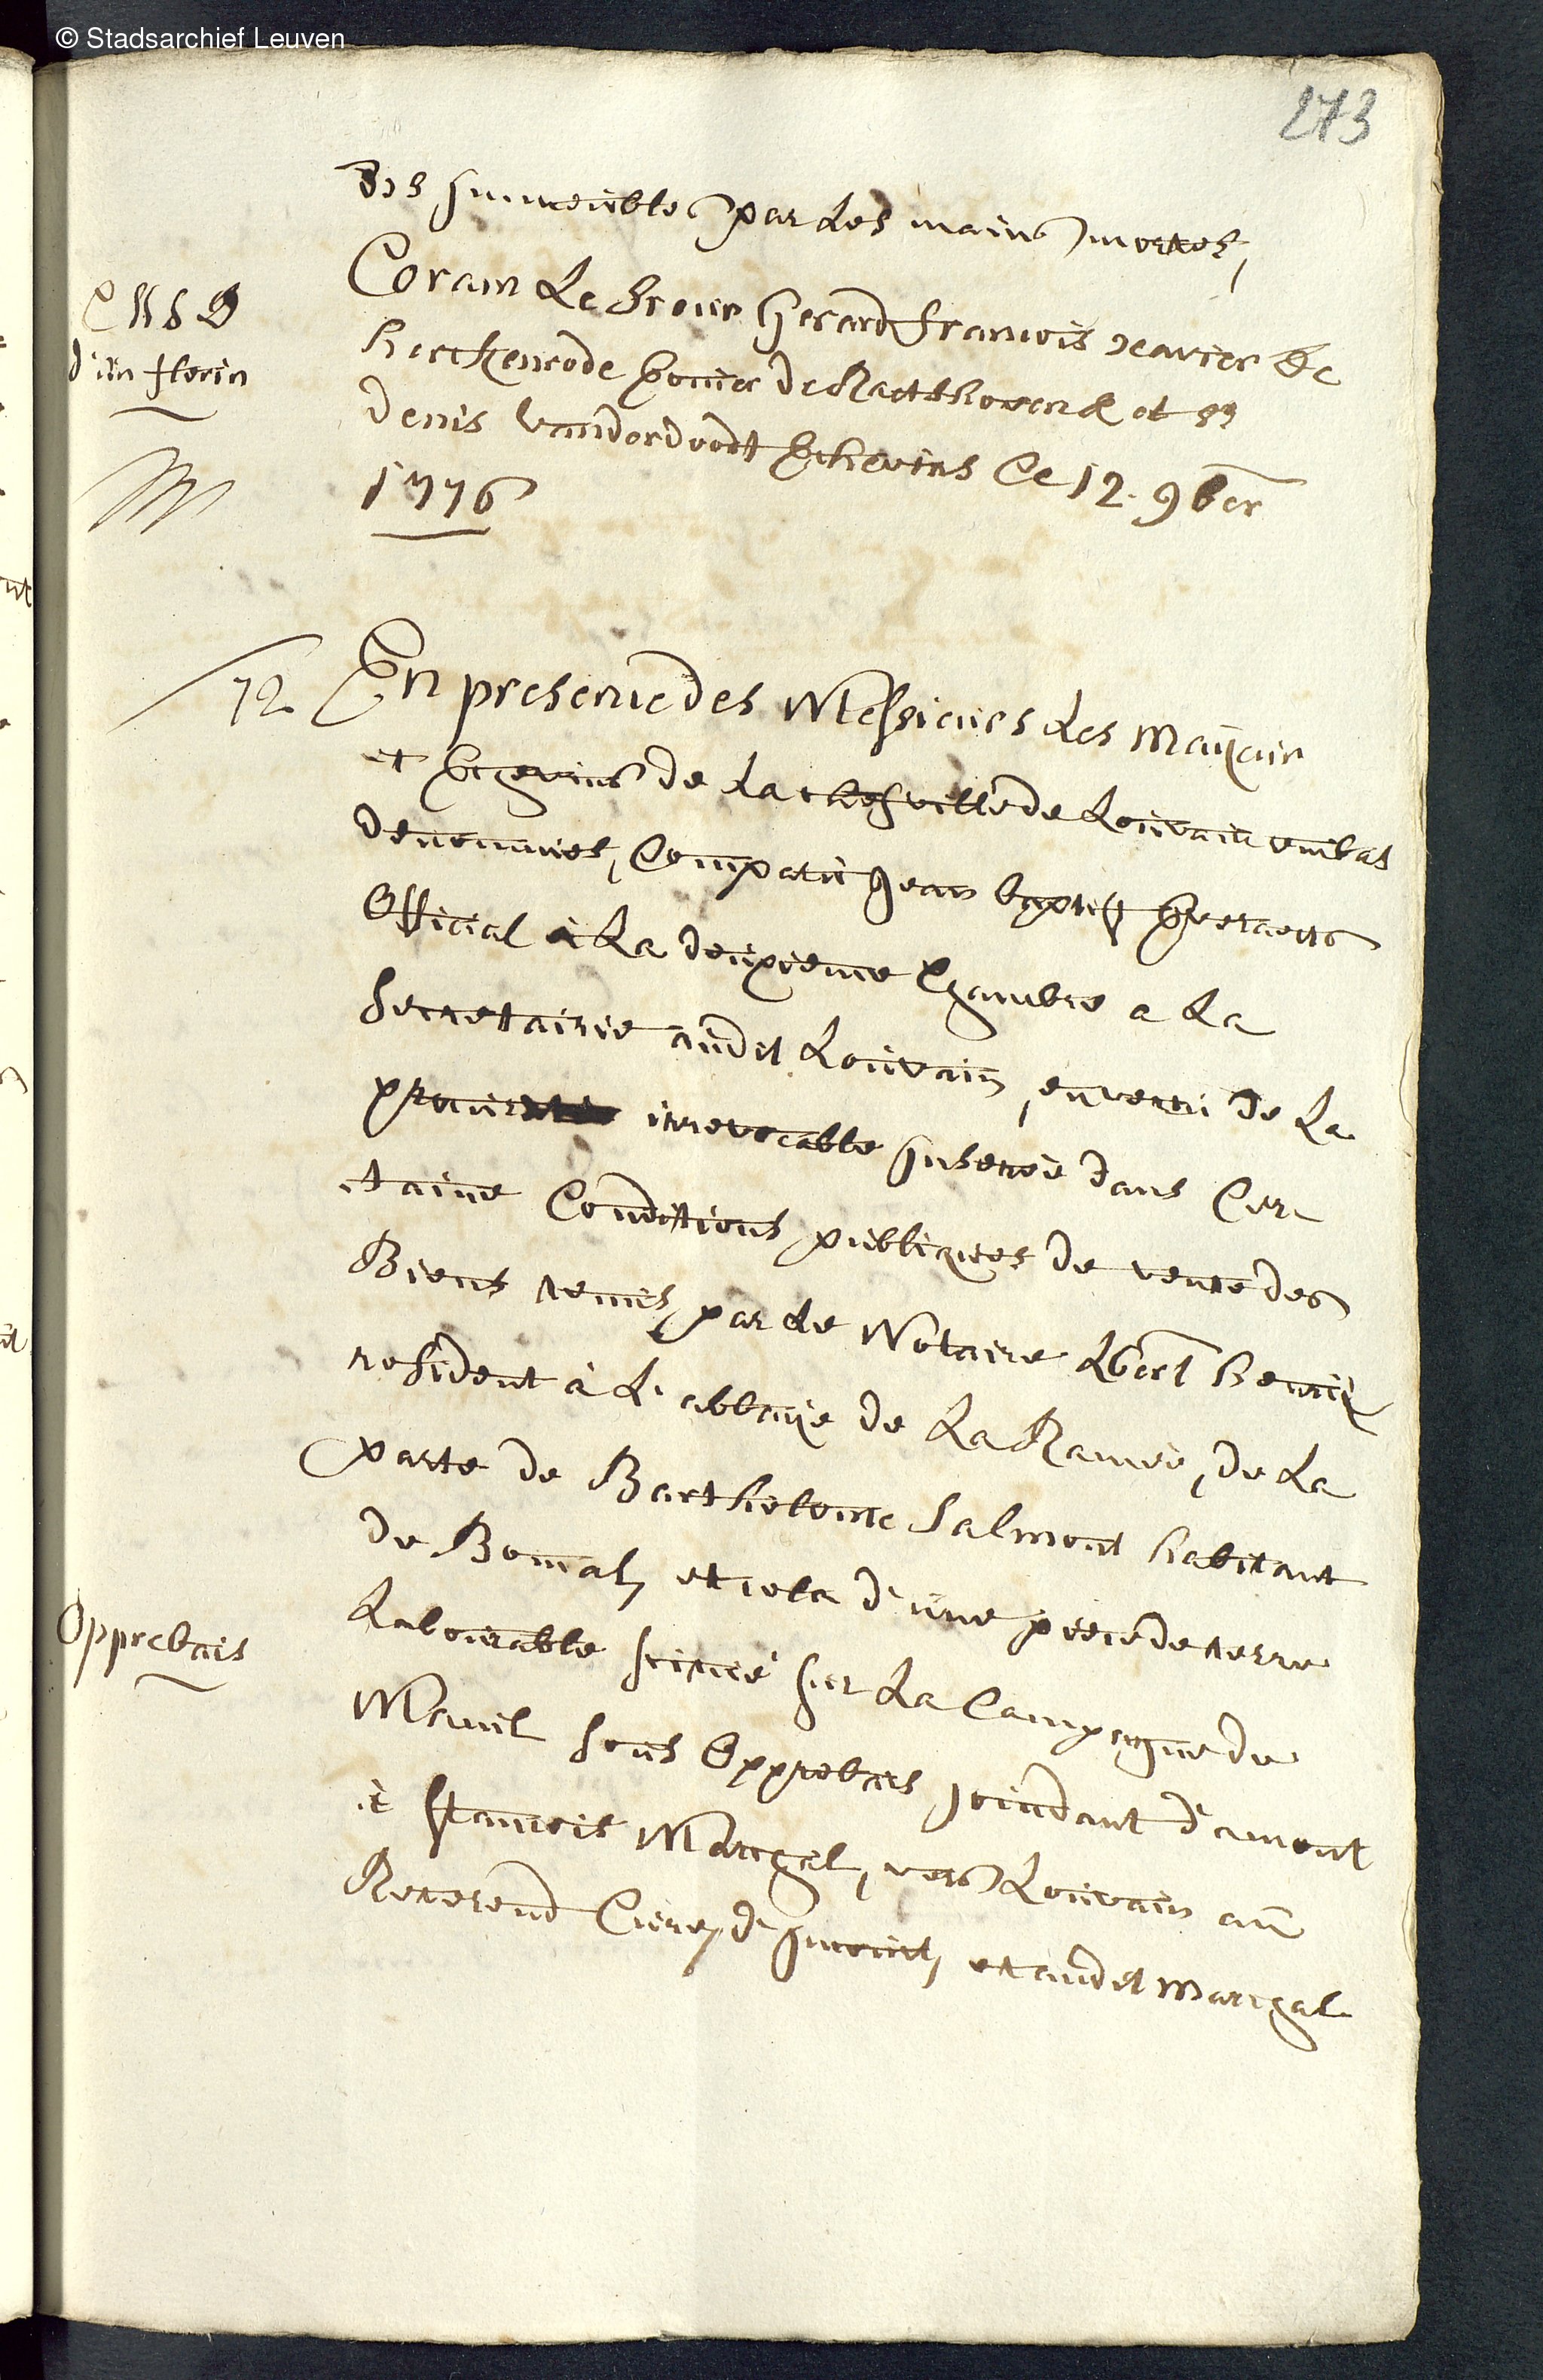 © Stadsarchief Leuven
273
des immeubles par les mains mortes,
Coram Le Sieur Gerard Francois Xavier de
herckenrode Ecuier de Raetshoven &c et Sr
Denis Vanderdoodt Echevins Ce 12. 9ber
1776
d'un florin
72 En presence des Messieurs Les Mayeur
et Echevins de La chef ville de Louvain embas
denommes, Comparu Jean baptist Everaerts
Official à La deuxieme Chambre a La
Secretairie audit Louvain, en vertu de La
irrevocable inserée dans Cer-
taine Conditions publiques de vente des
Biens tenus par le Notaire Libert henrix
resident à L'abbaye de La Ramée, de La
parte de Barthelome Salmont habitant
de Bomal, et cela d'une piece de terre
Opprebais
Labourable scitué sur La Campagne du
Manil sous Opprebais joindant d'amont
à Francois Marcgal, vers Louvain au
Reverend Curé d'jncourt, et audit Marcgal